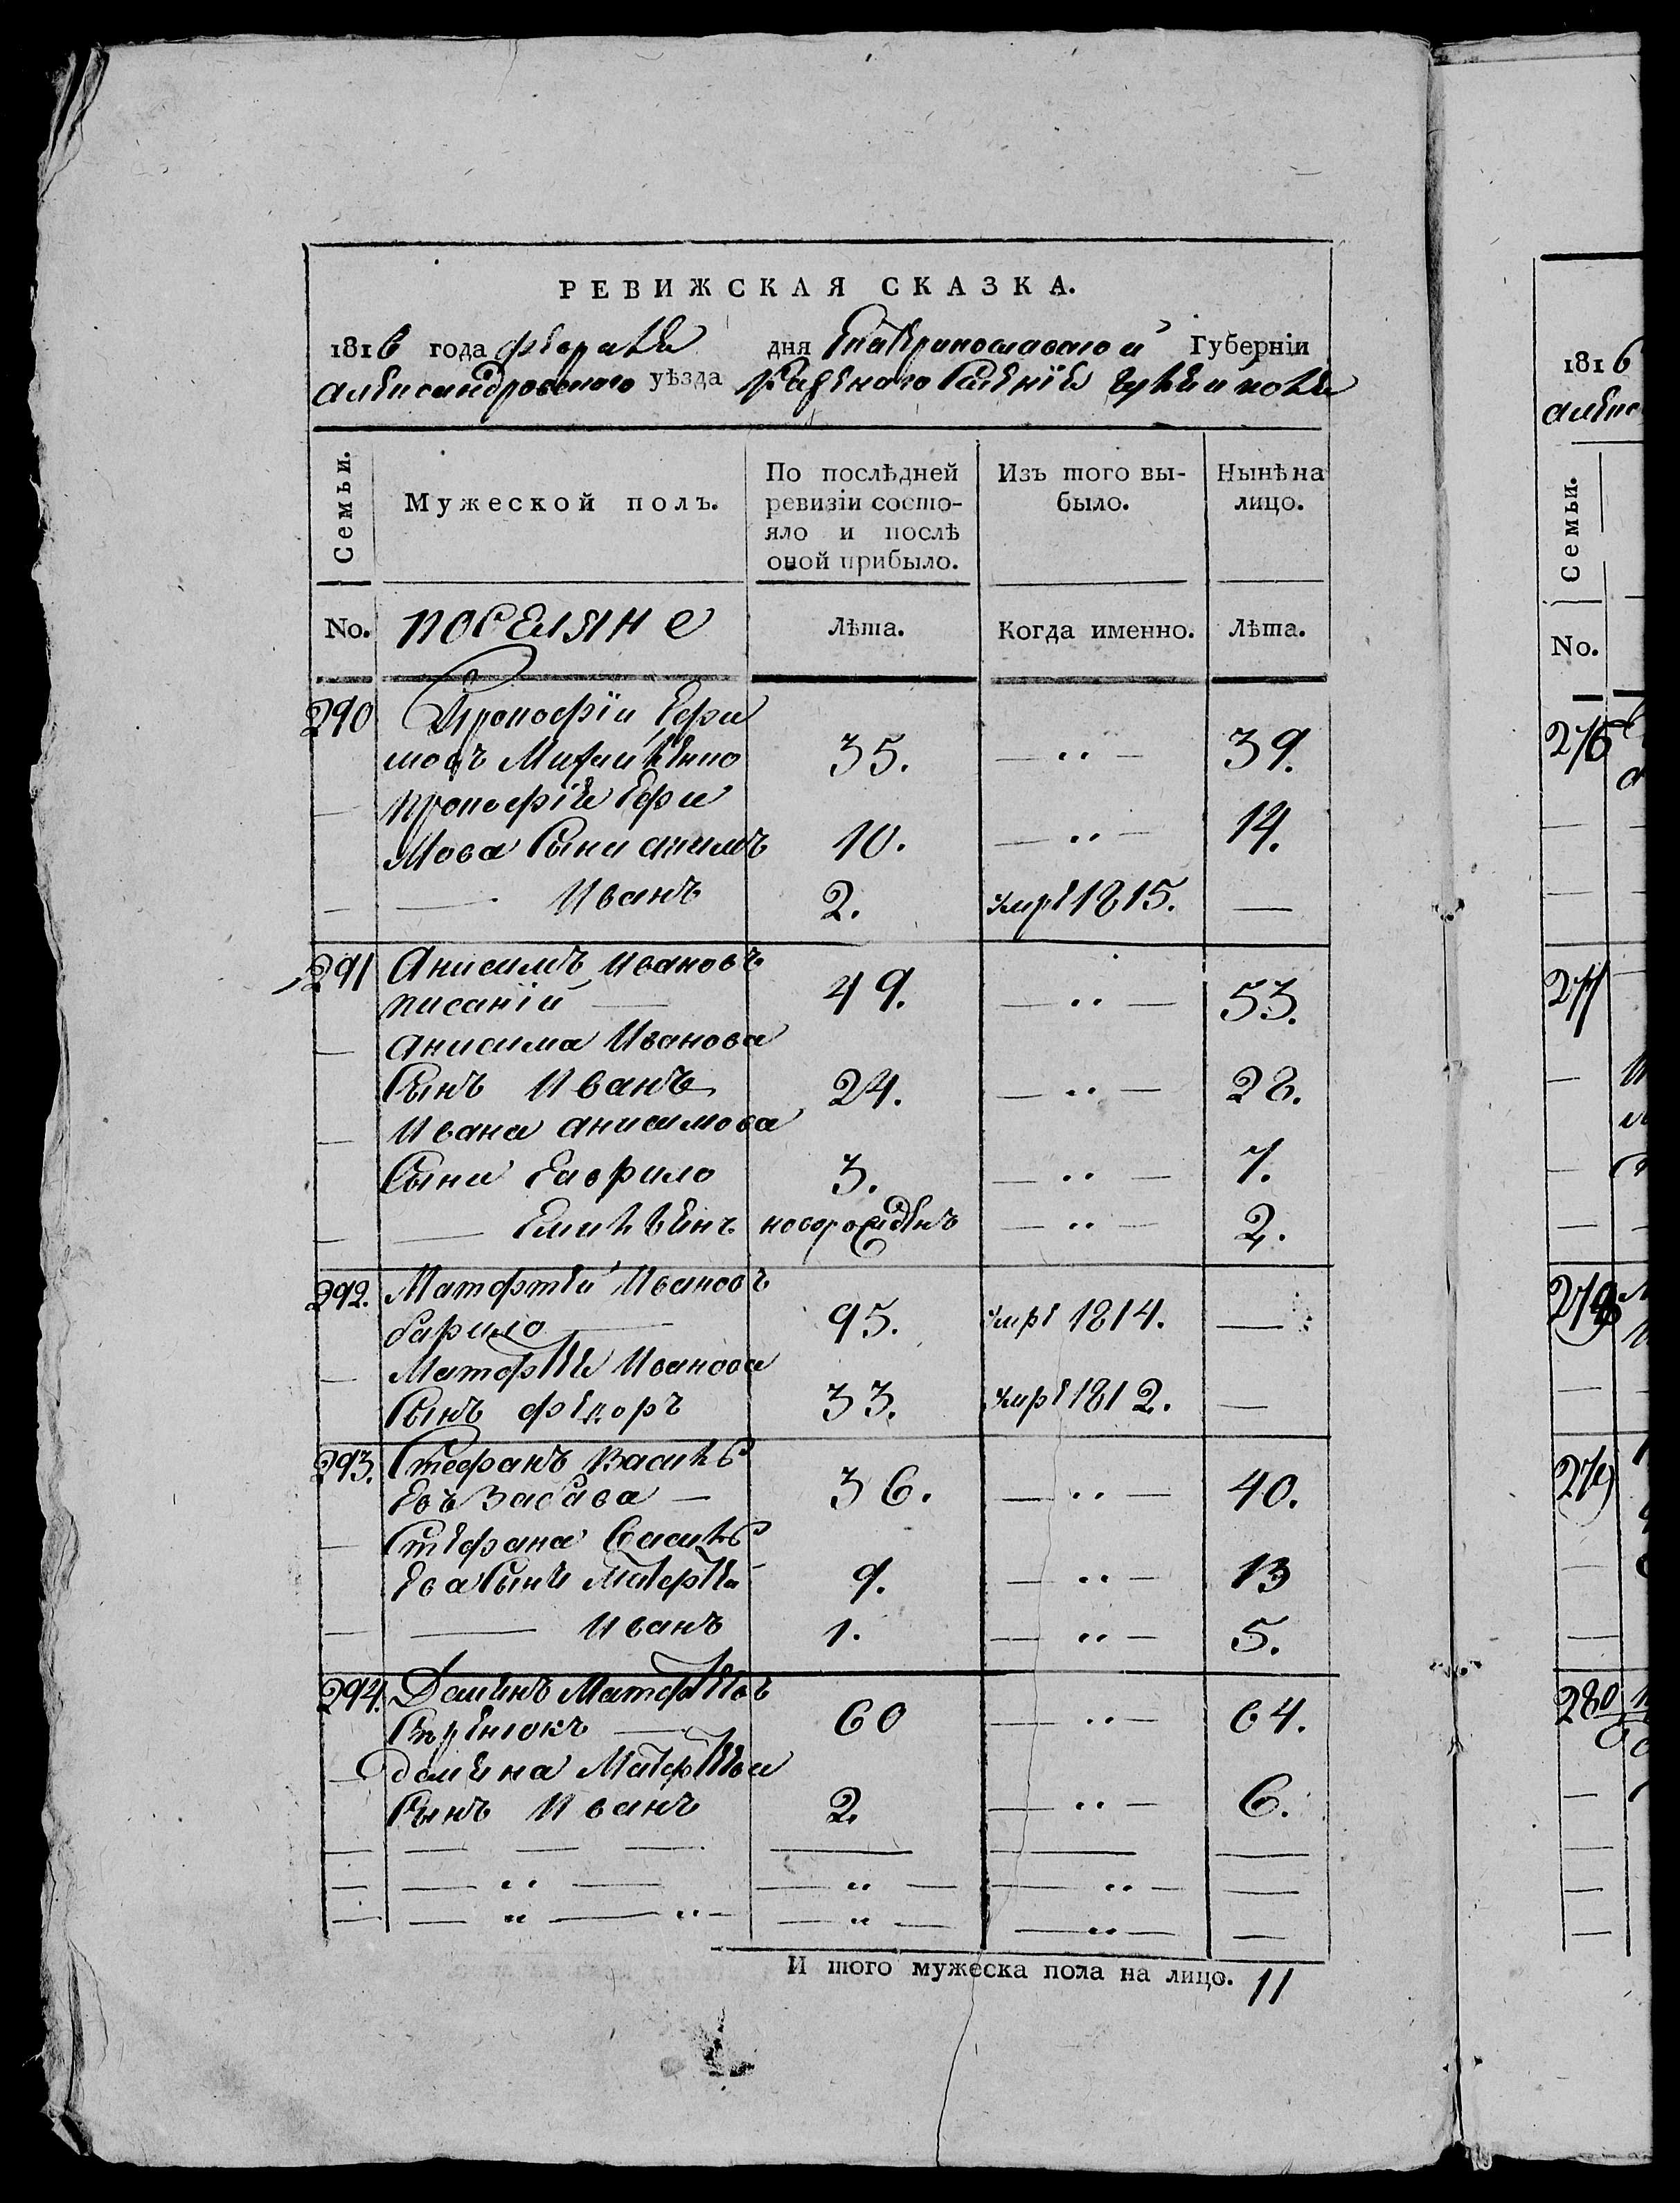 РЕВИЖСКАЯ СКАЗКА.
1816 года февраля дня Екатеринославской Губерніи
александровского уѣзда Казенного селенія
Семьи.
Мужеской полъ.
По послѣдней ревизіи состо-
яло и послѣ
оной прибыло.
Изъ того вы-
было.
Нынѣ на
лицо.
No. поселяне Лѣта. Когда именно. Лѣта.
290 Прокофій Ефи
мовъ 35. — „ — 39.
— прокофія Ефи
мова сыни акимъ 10. — „ — 14.
— — Иванъ 2. умре 1815. —
291 Анисимъ Ивановъ
писаній — 49. — „ — 53.
— анисима Иванова
сынъ Иванъ 24. — „ — 28.
— Ивана анисимова
сыни гаврило 3. — „ — 7.
— — Емильянъ новорожденъ — „ — 2.
292. Матфѣй Ивановъ
барило — 95. умре 1814. —
— Матфѣя Иванова
сынъ федоръ 33. умре 1812. —
293. Стефанъ Василь
евъ Забава — 36. — „ — 40.
— Стефана василь
ева сыни Матфѣй 9. — „ — 13
— — Иванъ 1. — „ — 5.
294. Деминъ Матфѣевъ
60 — „ — 64.
— демина Матфѣева
сынъ Иванъ 2. — „ — 6.
И того мужеска пола на лицо. 11
1816
алекс
Семьи.
No.
276
277
278
279
280